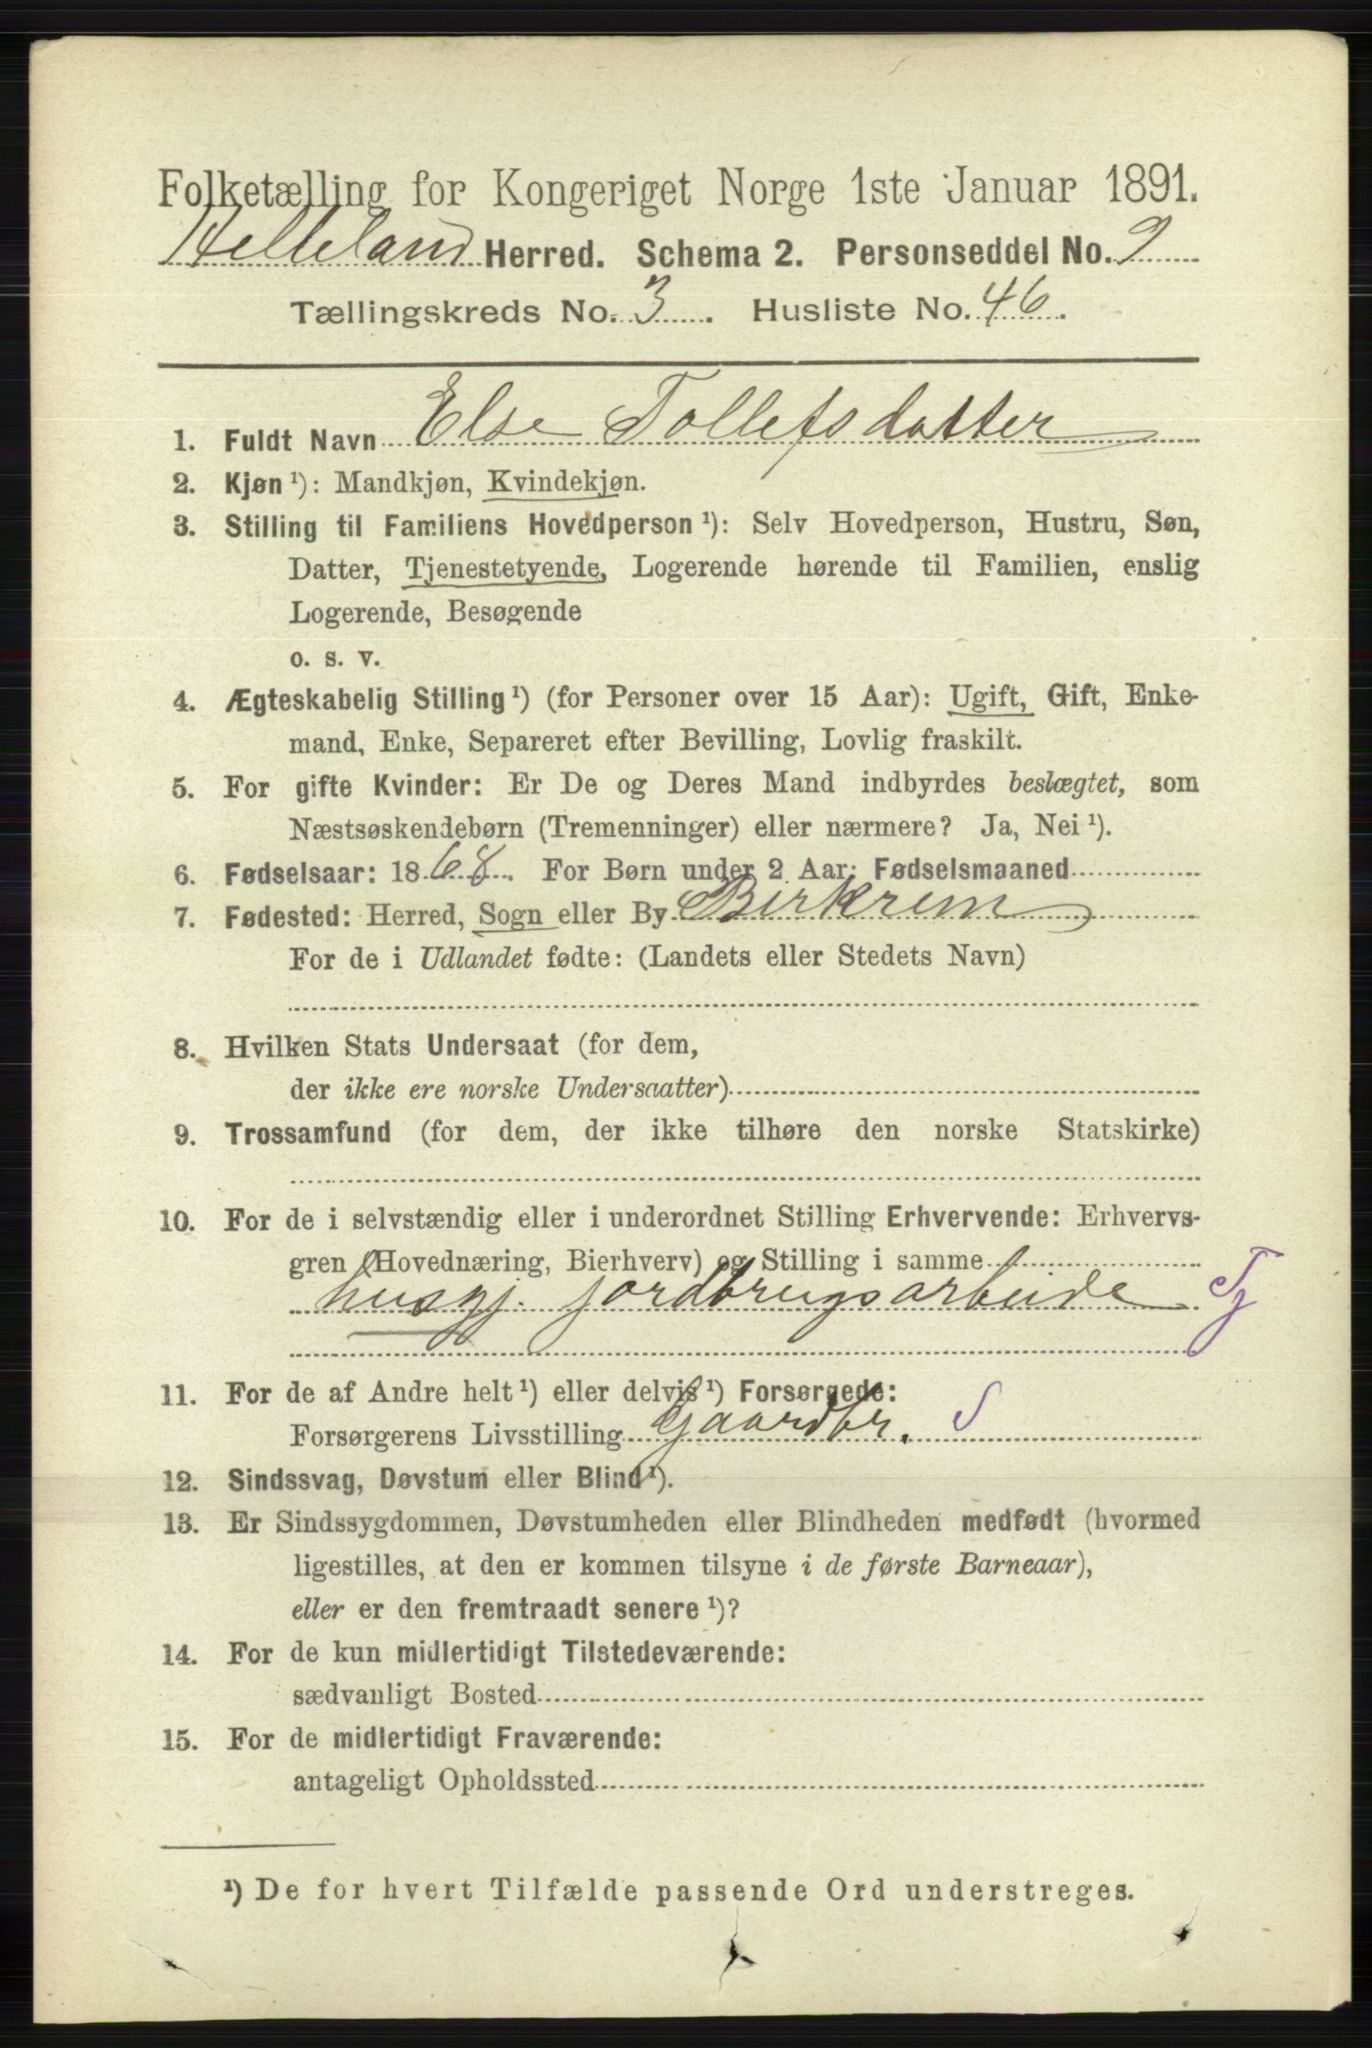 Folketælling for Kongeriget Norge 1ste Januar 1891.
Helleland Herred. Schema 2. Personseddel No. 9
Tællingskreds No. 3. Husliste No. 46.
1. Fuldt Navn Else Tollefsdatter
2. Kjøn ¹): Mandkjøn, Kvindekjøn.
3. Stilling til Familiens Hovedperson ¹): Selv Hovedperson, Hustru, Søn,
Datter, Tjenestetyende, Logerende hørende til Familien, enslig
Logerende, Besøgende
o. s. v.
4. Ægteskabelig Stilling ¹) (for Personer over 15 Aar): Ugift, Gift, Enke-
mand, Enke, Separeret efter Bevilling, Lovlig fraskilt.
5. For gifte Kvinder: Er De og Deres Mand indbyrdes beslægtet, som
Næstsøskendebørn (Tremenninger) eller nærmere? Ja, Nei ¹).
6. Fødselsaar: 1868. For Børn under 2 Aar: Fødselsmaaned
7. Fødested: Herred, Sogn eller By Birkrem
For de i Udlandet fødte: (Landets eller Stedets Navn)
8. Hvilken Stats Undersaat (for dem,
der ikke ere norske Undersaatter)
9. Trossamfund (for dem, der ikke tilhøre den norske Statskirke)
10. For de i selvstændig eller i underordnet Stilling Erhvervende: Erhvervs-
gren (Hovednæring, Bierhverv) og Stilling i samme
husgj. jordbrugsarbeide Tj
11. For de af Andre helt ¹) eller delvis ¹) Forsørgede:
Forsørgerens Livsstilling Gaardbr. S
12. Sindssvag, Døvstum eller Blind ¹).
13. Er Sindssygdommen, Døvstumheden eller Blindheden medfødt (hvormed
ligestilles, at den er kommen tilsyne i de første Barneaar),
eller er den fremtraadt senere ¹)?
14. For de kun midlertidigt Tilstedeværende:
sædvanligt Bosted
15. For de midlertidigt Fraværende:
antageligt Opholdssted
¹) De for hvert Tilfælde passende Ord understreges.